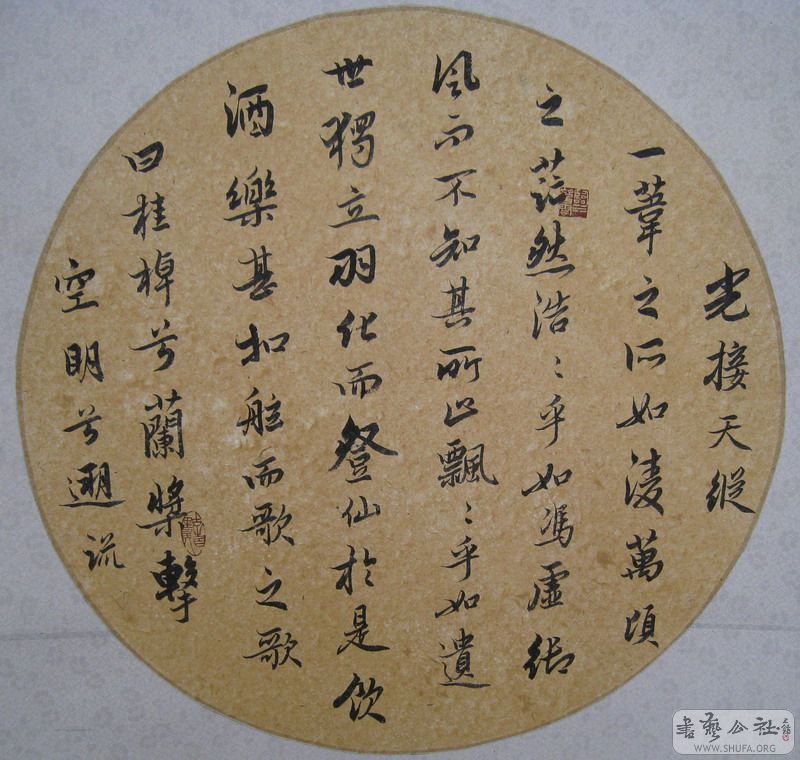 光接天縱
一葦之所如淩萬頃
之茫然浩〻乎如馮虛御
風而不知其所止飄〻乎如遺
世獨立羽化而登仙於是飲
酒樂甚扣舷而歌之歌
曰桂棹兮蘭槳擊
空明兮遡流
書藝公社
WWW.SHUFA.ORG